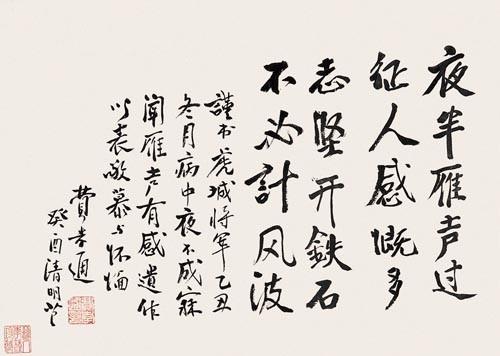 夜半雁声过
征人感慨多
志坚开鉄石
不必計风波
謹书虎城将军乙丑
冬月病中夜不成寐
闻雁声有感遗作
以表敬慕与怀缅
費孝通
癸酉清明节